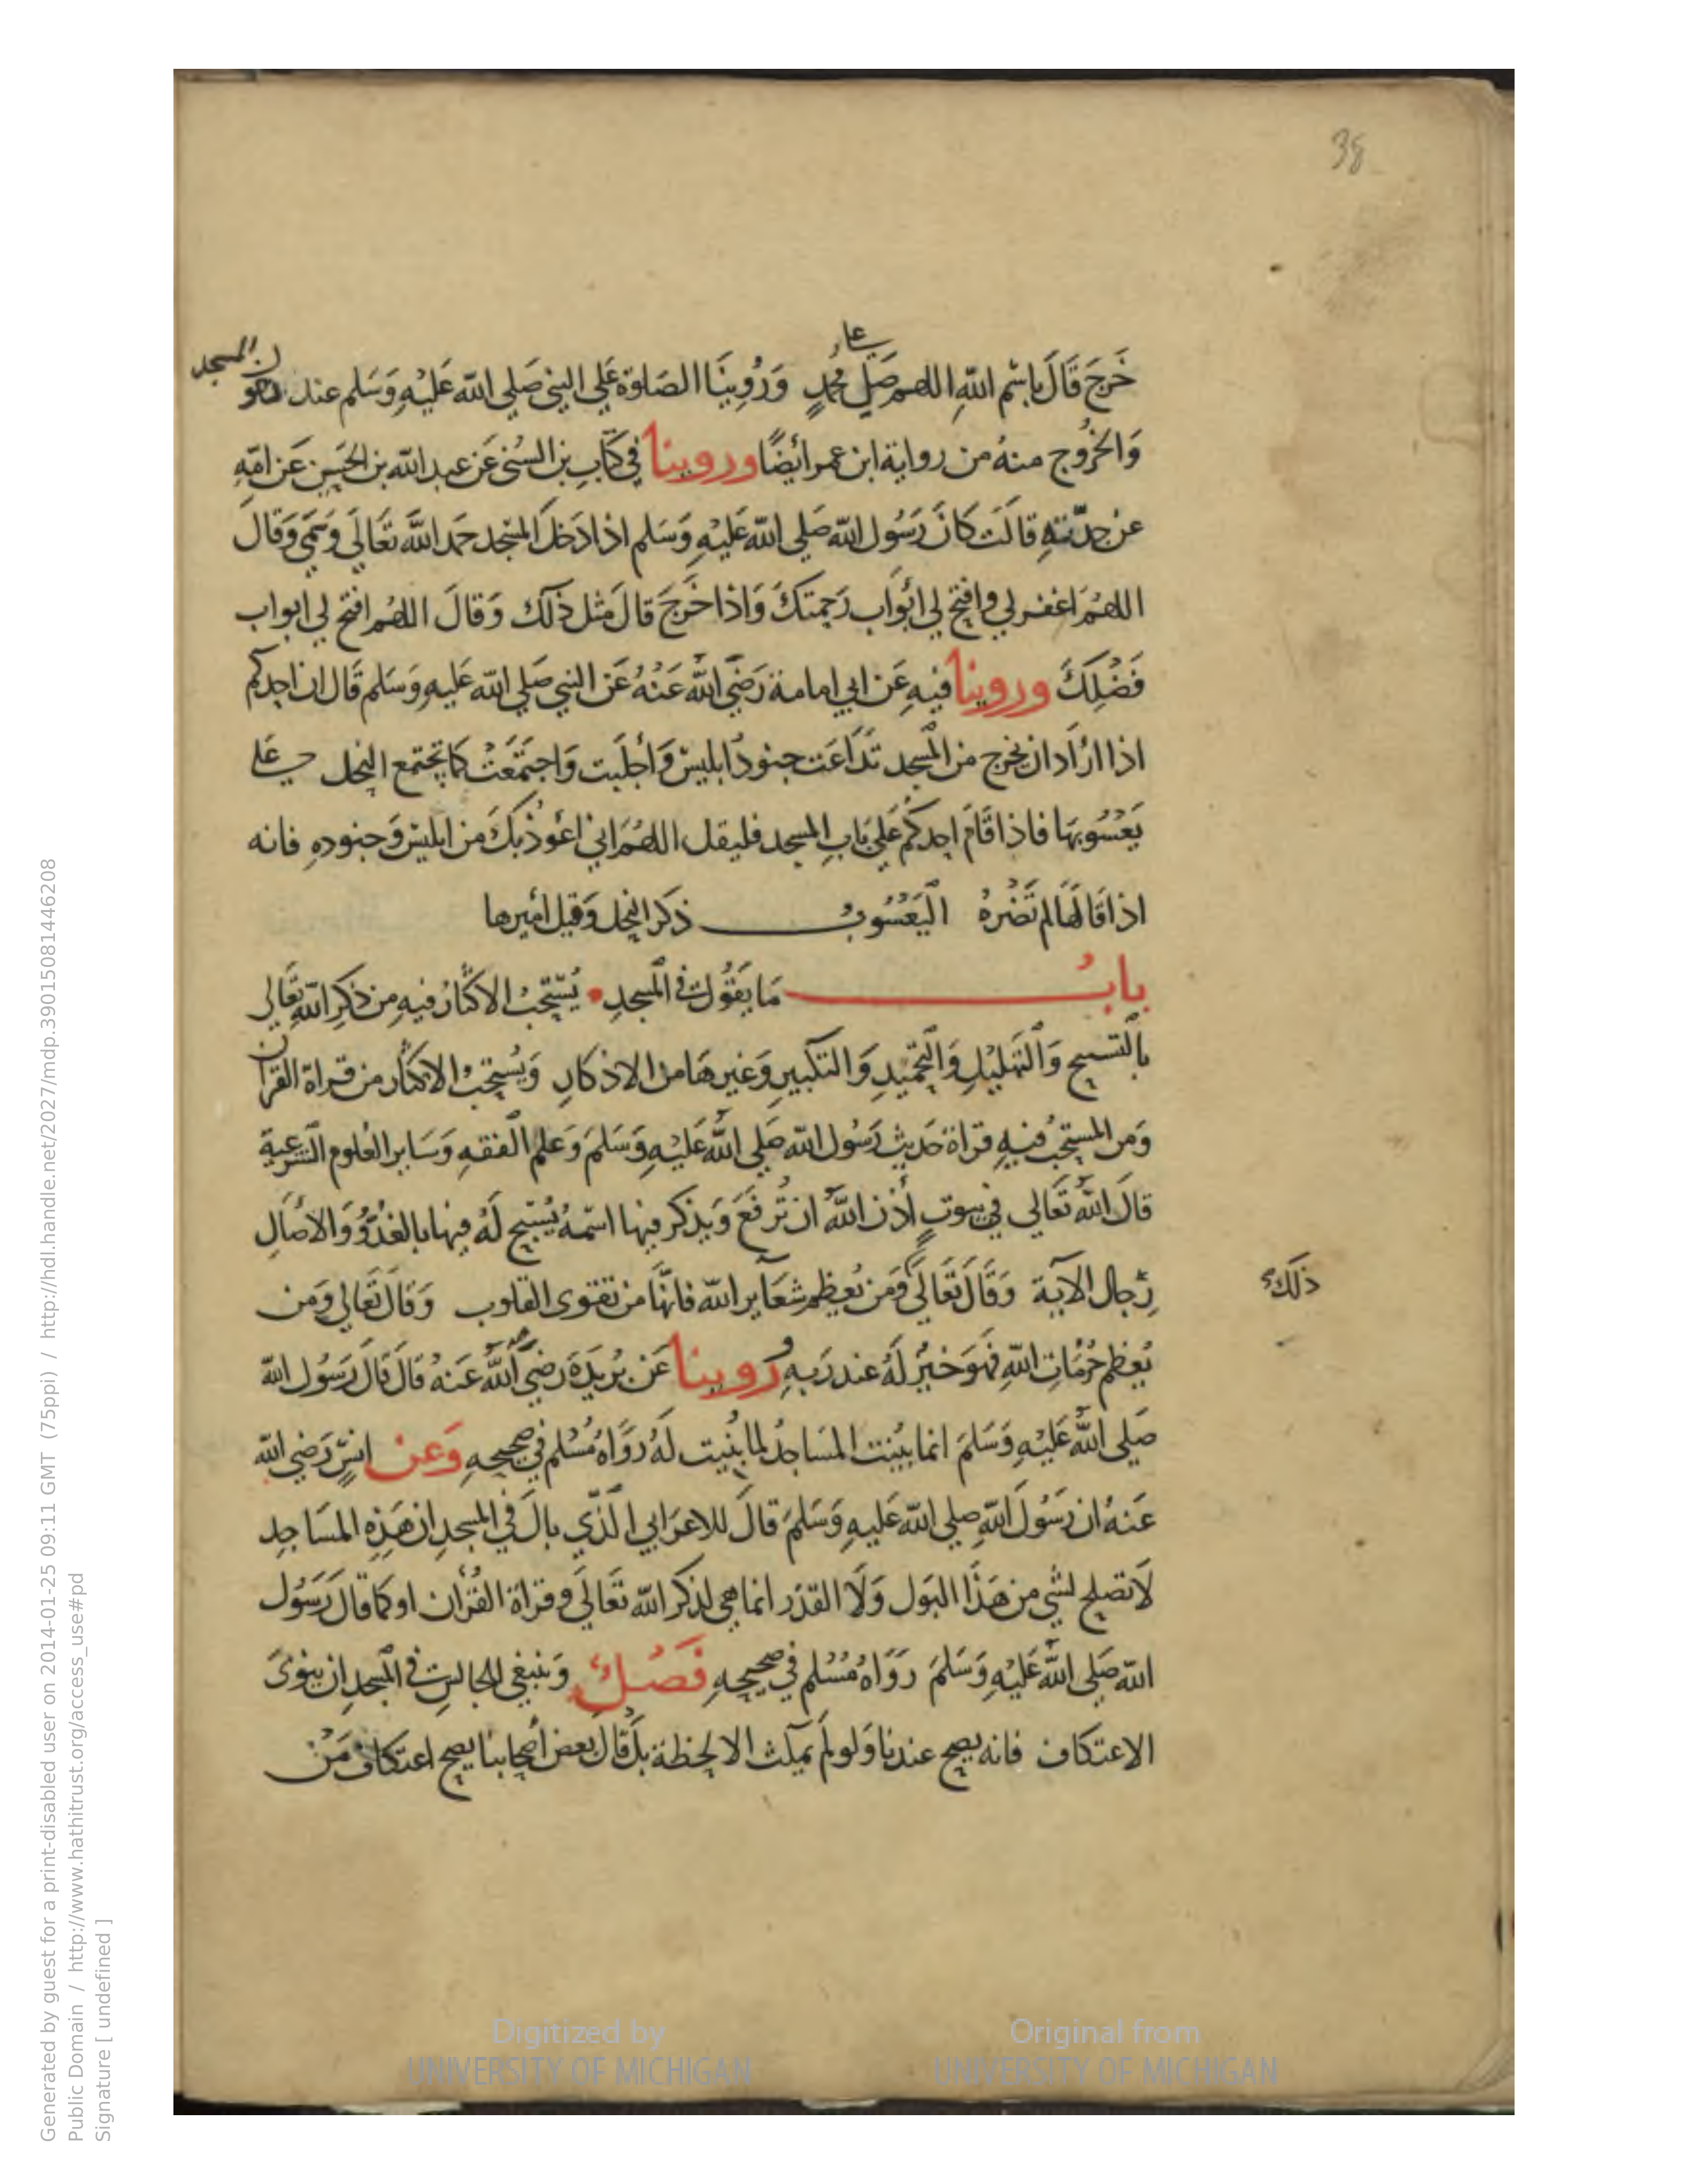 38
على
خَرَجَ قَالَ بِاسْمِ اللهِ اللهم صَلِ مُحمدٍ وَرُوِينَا الصَلوة عَلي النبي صَلي الله عَلَيْهِ وَسَلم عند
المسجد
وَالخُرُوج منهُ من رواية ابن عمر ايضًا وروينا في كتابِ بن السُني عَن عبد الله بن الحَسَن عَن امّهِ
عن جدّتهِ قالَت كَانَ رَسُول الله صَلي الله عَليْهِ وَسَلم اذا دَخلَ المسْجد حَمد اللهَ تَعَالَي وَسَمّي وَقالَ
اللهُمَ اغفر لي وافتح لي ابْوَاب رَحمتكَ وَاذا خَرجَ قالَ مثل ذلك وَقالَ اللهُم افتح لي ابواب
فَضْلِكَ وروينا فيهِ عَن ابي امامة رَضيَ اللهُ عَنْهُ عَن النبي صَلي الله عَليهِ وَسَلم قَال ان احدكم
اذا ارَاد ان يخرج من المسْجد تَدَاعَت جنودُ ابليسْ وَاجلَبت وَاجتَمَعَتْ كما تجتمع النحل على
يَعْسُوبهَا فاذا قَامَ احدكم عَلي بَابِ المسجد فليقل اللهُمَ اني اعُوذُ بكَ من ابليسْ وَجنودهِ فانه
اذا قالهَا لم تَضُرهُ اليَعْسُوبُ ذكر النحل وَقيل اميرها
بابُ مَا يَقُول في المسجدِ يُسْتحَبُ الاكثارُ فيهِ من ذكرِ اللهِ تَعَالي
بالتسبيح وَالتهْليْلِ وَالتحْميدِ وَالتكبيرِ وَغيرهَا من الاذكارِ وَيُستحَبُ الاكثار من قراة القرآن
وَمن المستحَبُ فيهِ قراة حَديث رَسُول الله صَلي اللهُ عَليْهِ وَسَلمَ وَعلم الفقهِ وَسَاير العُلوم الشرعية
قالَ اللهُ تَعَالي في بيوتٍ أذن اللهُ ان تُرفعَ وَيذكر فيها اسْمهُ يُسَبح لَهُ فيها بالغدُوّ وَالاصَالِ
رِجال الآية وَقَالَ تَعَالَى وَمَن يُعظم شعَآير الله فانهَّا من تقوى القلوب وَقالَ تَعَالي وَمن
ذلك
يُعظم حُرُمَاتِ اللهِ فهوَ خيرُ لَهُ عند رَبهِ روينا عَن بُريدَةَ رَضيَ اللهُ عَنهُ قالَ قَالَ رَسُول الله
صَلي اللهُ عَليْهِ وَسَلمَ انما بُنيت المسَاجدُ لما بُنيت لَهُ رَوَاهُ مُسْلم في صحيحِهِ وَعن انسٍ رَضي الله
عَنهُ ان رَسُولَ اللهِ صلي الله عَليهِ وَسَلمَ قالَ للاعرَابي الذّي بالَ في المسجدِ ان هَذِه المسَاجدِ
لَا تصلح لشي من هَذَا البَول وَلَا القذَر انما هي لذكر الله تَعَالَي وقراة القُرْان او كما قالَ رَسُول
الله صَلي اللهُ عَليْهِ وَسَلمَ رَوَاهُ مُسْلم في صحيحِهِ فَصْلُ وَينبغي للجالس في المسْجد ان ينوىَ
الاعتكاف فانه يصح عندنا وَلو لم يمكث الا لحظة بل قالَ بعض أصحابنا يصح اعتكاف مَنْ
Digitized by
UNIVERSITY OF MICHIGAN
Original from
UNIVERSITY OF MICHIGAN
Generated by guest for a print-disabled user on 2014-01-25 09:11 GMT (75ppi) / http://hdl.handle.net/2027/mdp.39015081446208
Public Domain / http://www.hathitrust.org/access_use#pd
Signature [ undefined ]